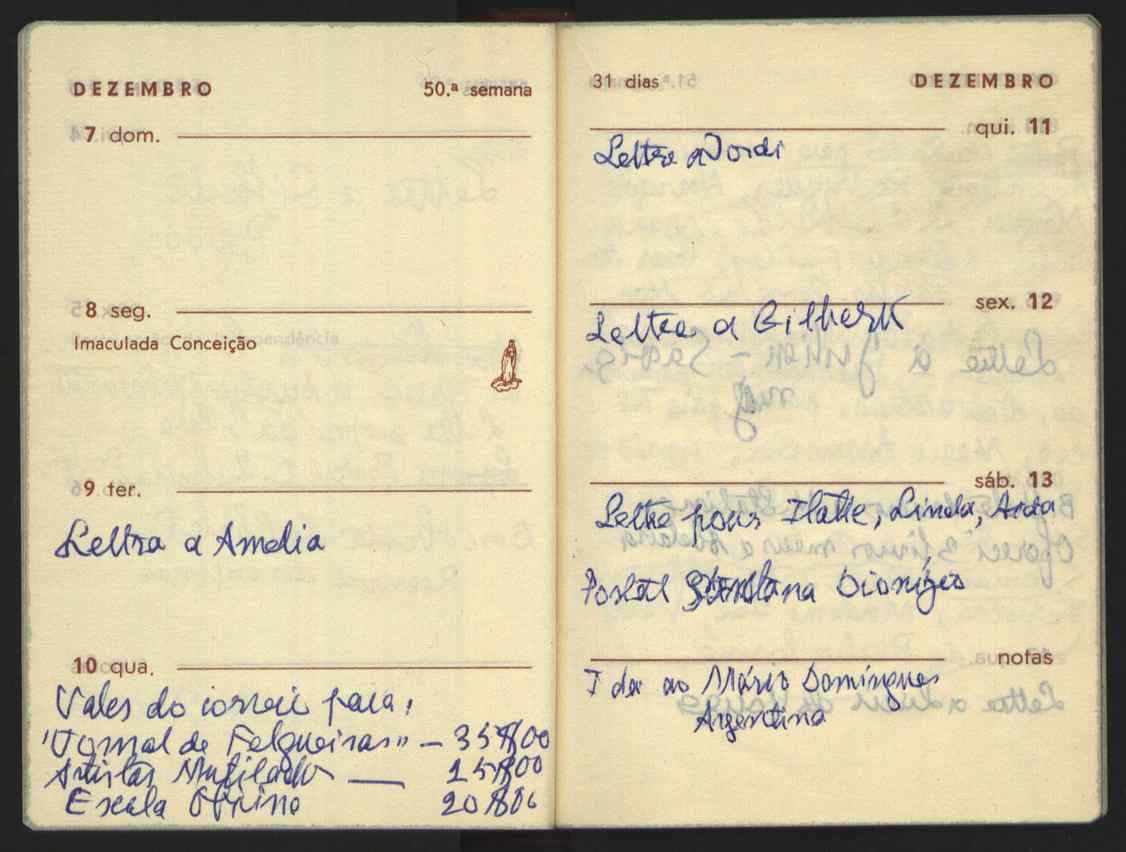 DEZEMBRO 50.ª semana
7 dom.
8 seg.
Imaculada Conceição
9 ter.
Lettra a Amelia
10 qua.
Vales do correio para:
"Jornal de Felgueiras" — 35$00
Artistas Mutilados — 15$00
Escala 20$00
31 dias DEZEMBRO
qui. 11
Lettre a Jordi
sex. 12
Lettre a Gilbert
sáb. 13
Lettre pour Linda, Aida
Postal Santana Dionísio
notas
Ida ao Mário Domingues
Argentina